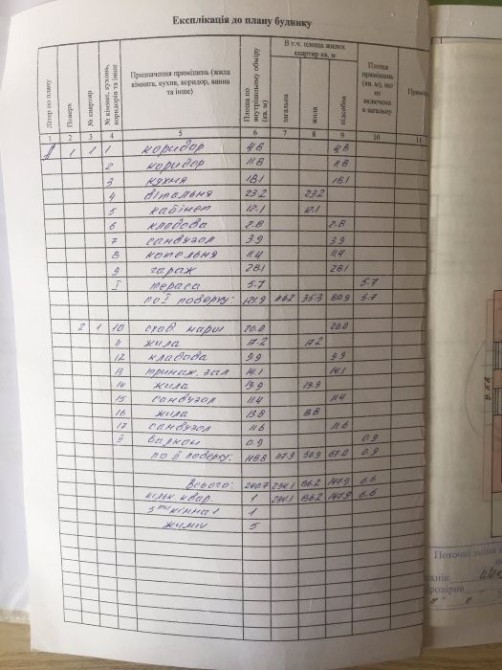 Експлікація до плану будинку
Літер по плану
Поверх
№ квартир
№ кімнат, кухонь, коридорів та інше
Призначення приміщень (жила кімната, кухня, коридор, ванна та інше)
Площа по внутрішньому обміру (кв. м)
В т.ч. площа жилих квартир кв. м
загальна
жила
підсобна
Площа приміщень (кв. м), що не включена в загальну
1 2 3 4 5 6 7 8 9 10 11
1 1 1 коридор 4.8 4.8
2 коридор 11.8 11.8
3 кухня 18.1 18.1
4 вітальня 23.2 23.2
5 кабінет 12.1 12.1
6 кладова 2.8 2.8
7 санвузол 3.9 3.9
8 котельня 11.4 11.4
9 гараж 28.1 28.1
I тераса 5.7 5.7
по I поверху: 35.3 5.7
2 1 10 схід. марш 26.0 26.0
11 жила 17.2 17.2
12 кладова 3.9 3.9
13 тренаж. зал 14.1 14.1
14 жила 19.9 19.9
15 санвузол 11.4 11.4
16 жила 13.8 13.8
17 санвузол 11.6 11.6
I балкон 0.9 0.9
по II поверху: 50.9 67.0 0.9
Всього: 240.7 234.1 86.2 147.9 6.6
кільк. квар. 1 234.1 86.2 147.9 6.6
5 кімнат 1
жилих 5